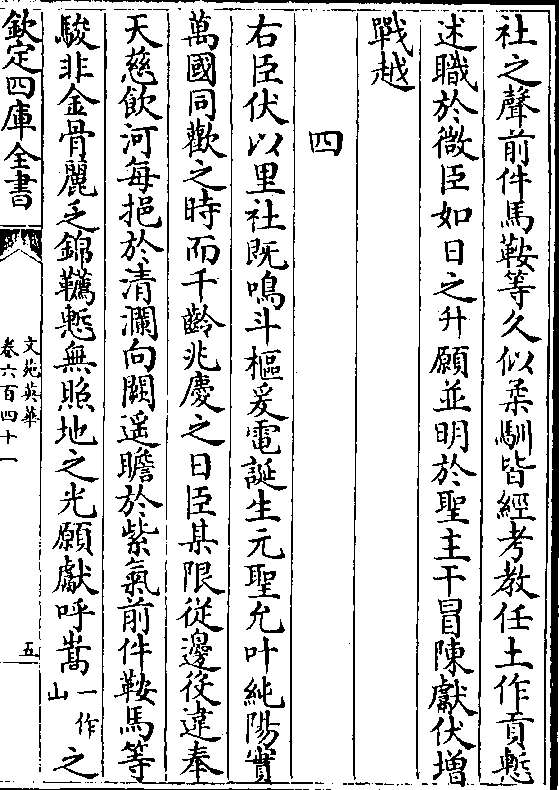 社之聲前件馬鞍等久似柔馴皆經考教任土作貢慙
述職於微臣如日之升願並明於聖主干冒陳獻伏增
戰越
四
右臣伏以里社既鳴斗樞爰電誕生元聖允叶純陽實
萬國同歡之時而千齡兆慶之日臣某限從邊役違奉
天慈飲河每挹於清瀾向闕遥瞻於紫氣前件鞍馬等
駿非金骨麗乏錦韉慙無照地之光願獻呼嵩一作山之
欽定四庫全書
文苑英華
卷六百四十一
五